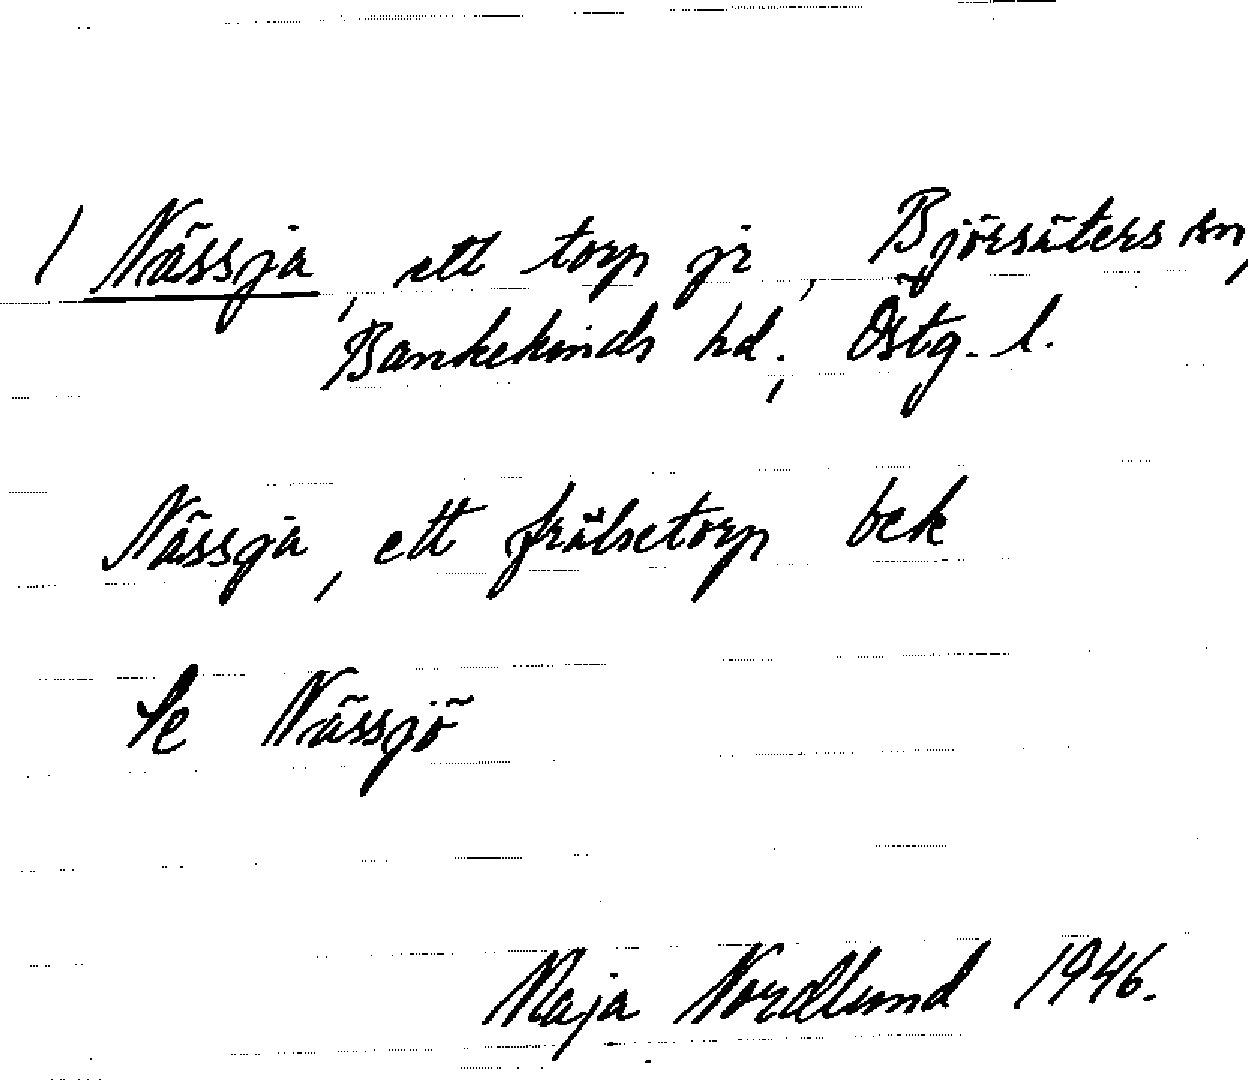 / Nässja, ett torp jr, Björsäters sn,
Bankekinds hd., Östg. l.
Nässja, ett frälsetorp bek
Se Nässjö
Maja Nordlund 1946.